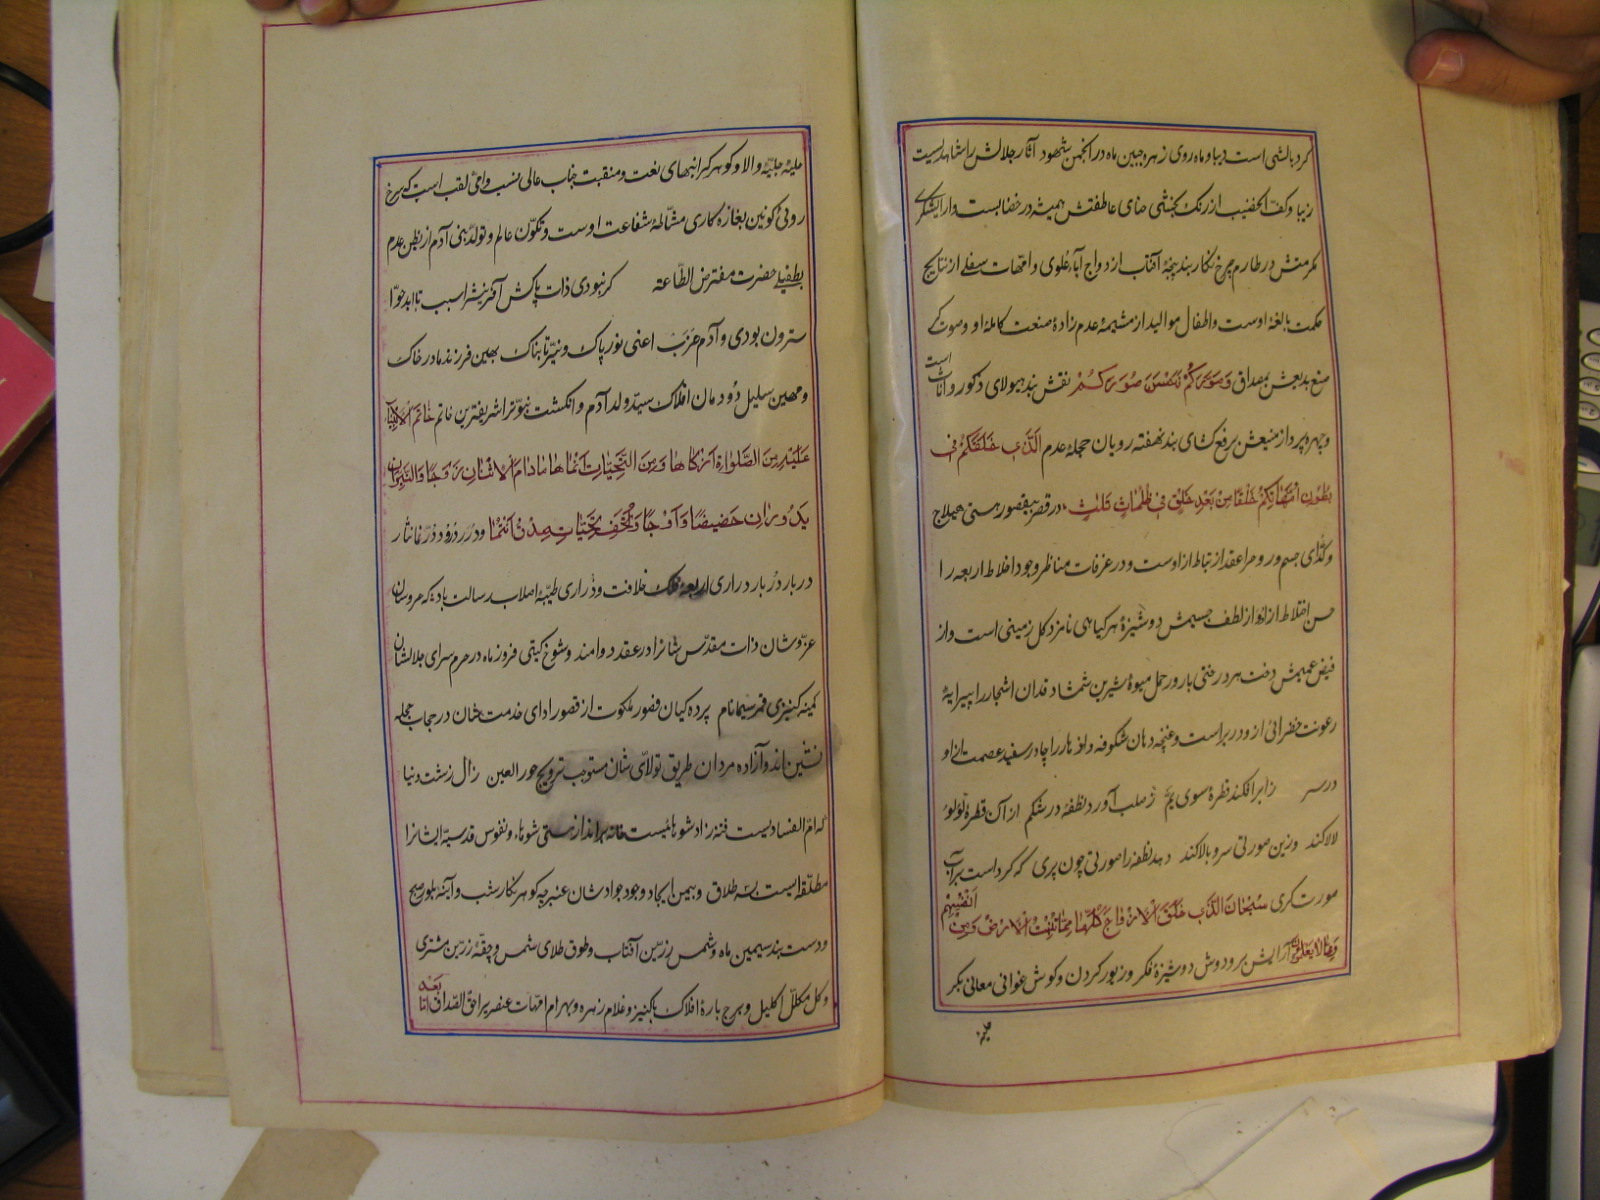 کرد بالشی است دیبا و ماه روی زهره جبین ماه در انجمن شهود آثار جلالش را شاهدیست
زیبا و کف الخضیب از رنک بخشی حنای عاطفتش همیشه در خضابست و آرایشگری
مکرمتش در طارم چرخ نکاربند پنجهٔ آفتاب ازدواج آباء علوی و امهات سفلی از نتایج
حکمت بالغهٔ اوست و اطفال موالید از مشیمهٔ عدم زادهٔ صنعت کاملهٔ او و صورت کری
صنع بدیعش بمصداق وَصَوَّرَکُمْ فَاَحْسَنَ صُوَرَکُمْ نقش بند هیولای ذکور و اناث است
و چهره پرداز منیعش برقع کشای بند نهفته رویان حجلهٔ عدم الَّذی خَلَقَکُمْ فی
بُطُونِ اُمَّهاتِکُمْ خَلْقًا مِنْ بَعْدِ خَلْقٍ فی ظُلُماتٍ ثَلاثٍ در قصر بیقصور هستی هیلاج
و کدخدای جسم و روح را عقد ارتباط از اوست و در غرفات مناظر وجود اخلاط اربعه را
حسن اختلاط ازو از لطف جسیمش دوشیزهٔ هر کیاهی نامزد کل زمینی است و از
فیض عمیمش دخت هر درختی بارور حمل میوهٔ شیرین شمشاد قدان اشجار را پیرایهٔ
رعونت خضرائی ازو در بر است و غنچه دهان شکوفه و ازهار را چادر سفید عصمت از او
در سر ز ابر افکند قطرهٔ سوی یم ز صلب آورد نطفهٔ در شکم از آن قطره لؤلؤ
لالا کند وزین صورتی سرو بالا کند دهد نطفه را صورتی چون پری که کرد است بر آب
صورت کری سُبْحانَ الَّذی خَلَقَ الْاَزْواجَ کُلَّها مِمّا تُنْبِتُ الْاَرْضُ وَمِنْ اَنْفُسِهِمْ
وَمِمّا لا یَعْلَمُونَ آرایش بر و دوش دوشیزهٔ فکر و زیور کردن و کوش غوانی معانی بکر
حلیه
حلیهٔ جلیّهٔ والا و کوهر کرانبهای نعت و منقبت جناب عالی نسب و امّی لقب است که سرخ
روئی کونین بغازه کاری مشاطهٔ شفاعت اوست و تکوّن عالم و تولّد بنی آدم از بطن عدم
بطفیل حضرت مفترض الطّاعته کر نبودی ذات پاکش آفرینش را سبب تا ابد حوّا
سترون بودی و آدم عَزَب اعنی نور پاک و نیّر تابناک بهین فرزند مادر خاک
و مهین سلیل دودمان افلاک سیّد ولد آدم و انکشت نبوّت را شریفترین خاتم خاتَم الاَنْبِیآء
عَلَیْهِ مِنَ الصَّلَواةِ اَزْکاها وَمِنَ التَّحِیّاتِ اَنْماها مادامَ الاِثْنانِ زَوْجًا وَالنَّیِّرانِ
یَدُورانِ حَضیضًا وَاَوْجًا وَتُحَفِ تَحِیّاتِ و درر درود درّ نثار
دربار دُربار دراری اربعهٔ فلک خلافت و ذراری طیّبهٔ اصلاب رسالت باد که عروسان
عزّ و شان ذات مقدّس شانرا در عقد دوامند و شوخ کیتی فروز ماه در حرم سرای جلالشان
کمینه کنیزی قمر سیما نام پرده کیان قصور ملکوت از قصور ادای خدمت شان در حجاب حجله
نشین اند و آزاده مردان طریق تولّای شان مستوجب ترویج حور العین زال زشت دنیا
که امّ الفساد یست فتنه زاد شوهائیست خانه برانداز هستی شوها و نفوس قدسیّهٔ ایشانرا
مطلّقه ایست بسه طلاق و بیمن ایجاد وجود جوادشان عنبرچه کوهر نکار شب و آینهٔ بلور صبح
و دست بند سیمین ماه و شمس زرّین آفتاب و طوق طلای شمس و حقّهٔ زرّین مشتری
و کل مکلّل اکلیل و برج بارهٔ افلاک با کنیز و غلام زهره و بهرام امهات عنصر یرا حقّ الصّداق امّا بَعْد